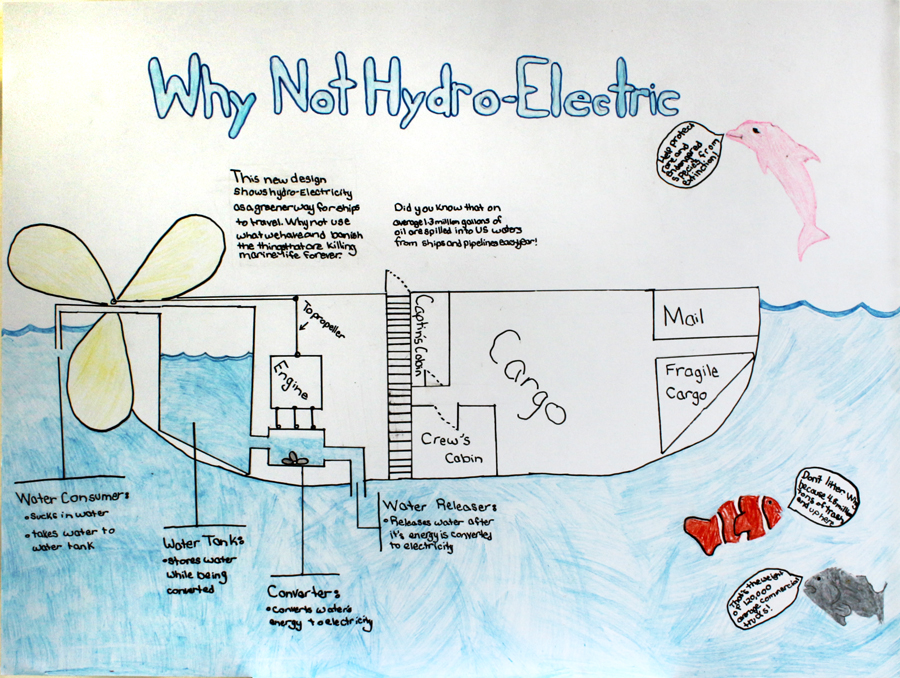 Why Not Hydro-Electric
Help protect
rare and
endangered
species from
extinction!
This new design
shows hydro-Electricity
as a greener way for ships
to travel. Why not use
what we have and banish
the things that are killing
marine life forever.
Did you know that on
average 1.3 million gallons of
oil are spilled into US waters
from ships and pipelines each year!
To propeller
Engine
Captin's Cabin
Cargo
Mail
Fragile
Cargo
Crew's
Cabin
Water Consumer:
•Sucks in water
•takes water to
water tank
Water Tank:
•stores water
while being
converted
Converter:
•converts water's
energy to electricity
Water Releaser:
•Releases water after
it's energy is converted
to electricity
Don't litter
because 4.8 million
tons of trash
end up here
That's the weight
of 120,000
average commercial
trucks!